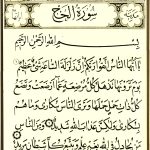 سُورَةُ الْحَجِّ
بِسْمِ اللَّهِ الرَّحْمَنِ الرَّحِيمِ
يَا أَيُّهَا النَّاسُ اتَّقُوا رَبَّكُمْ إِنَّ زَلْزَلَةَ السَّاعَةِ شَيْءٌ عَظِيمٌ
يَوْمَ تَرَوْنَهَا تَذْهَلُ كُلُّ مُرْضِعَةٍ عَمَّا أَرْضَعَتْ
وَتَضَعُ كُلُّ ذَاتِ حَمْلٍ حَمْلَهَا وَتَرَى النَّاسَ سُكَارَى وَمَا هُمْ
بِسُكَارَى وَلَكِنَّ عَذَابَ اللَّهِ شَدِيدٌ وَمِنَ النَّاسِ
مَنْ يُجَادِلُ فِي اللَّهِ بِغَيْرِ عِلْمٍ وَيَتَّبِعُ كُلَّ شَيْطَانٍ مَرِيدٍ